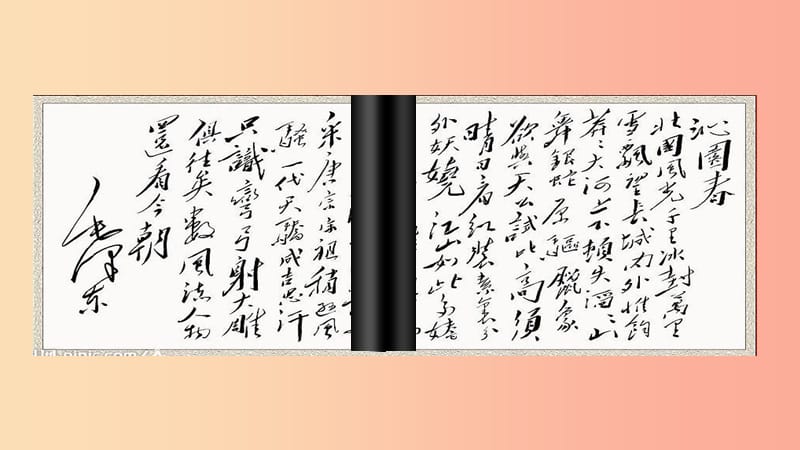 沁園春
北國風光千里冰封萬里
雪飄望長城内外惟餘
莽々大河上下頓失滔々山
舞銀蛇原驅臘象
欲與天公試比高須
晴日看紅裝素裹分
外妖嬈江山如此多嬌
采唐宗宋祖稍遜風
騷一代天驕成吉思汗
只識彎弓射大雕
俱往矣數風流人物
還看今朝
毛澤東